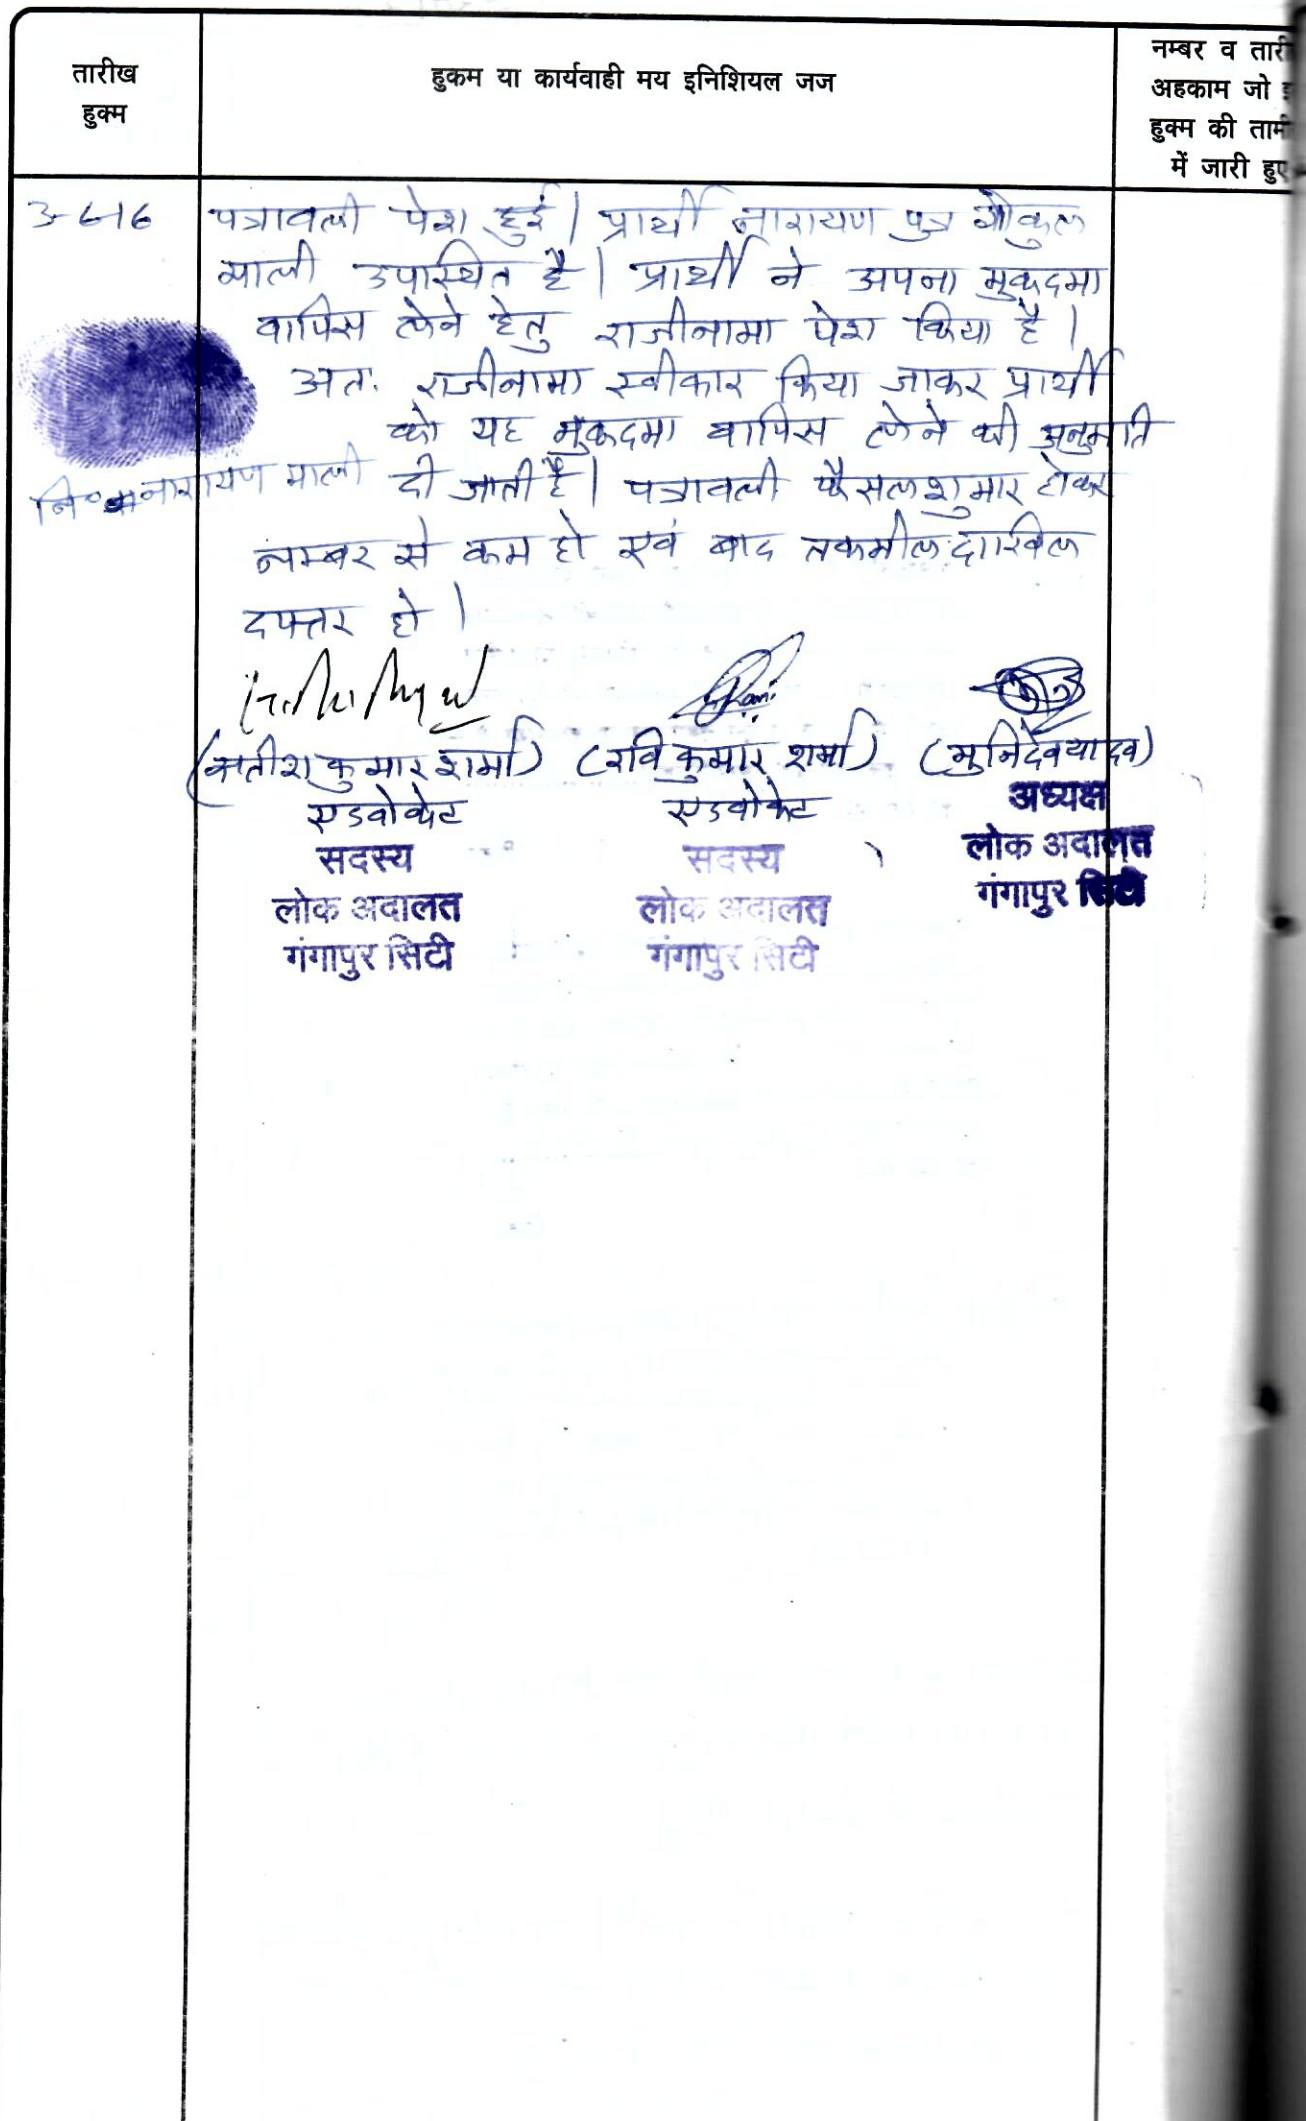 तारीख
हुक्म
हुकम या कार्यवाही मय इनिशियल जज
नम्बर व तारी
अहकाम जो इ
हुक्म की तामी
में जारी हुए
3-6-16
पत्रावली पेश हुई। प्रार्थी नारायण पुत्र गोकुल
माली उपास्थित है। प्रार्थी ने अपना मुकदमा
वापिस लेने हेतु राजीनामा पेश किया है।
अतः राजीनामा स्वीकार किया जाकर प्रार्थी
को यह मुकदमा वापिस लेने की अनुमति
नि० नारायण माली
दी जाती है। पत्रावली फैसलशुमार होकर
नम्बर से कम हो एवं बाद तकमील दाखिल
दफ्तर हो।
(सतीश कुमार शर्मा) (रवि कुमार शर्मा) (मुनिदेव यादव)
एडवोकेट
सदस्य
लोक अदालत
गंगापुर सिटी
एडवोकेट
सदस्य
लोक अदालत
गंगापुर सिटी
अध्यक्ष
लोक अदालत
गंगापुर सिटी